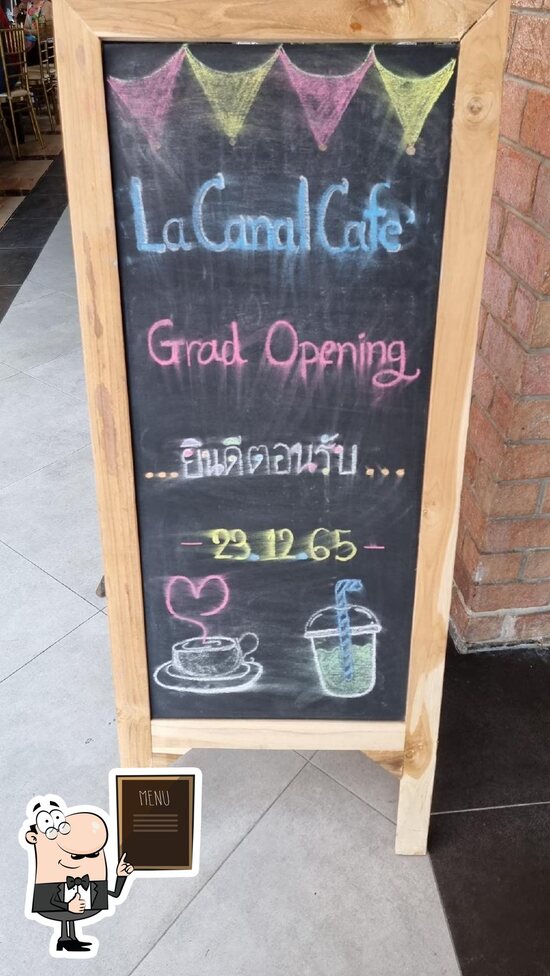 La Canal Cafe'
Grad Opening
...ยินดีตอนรับ...
- 23.12.65 -
MENU